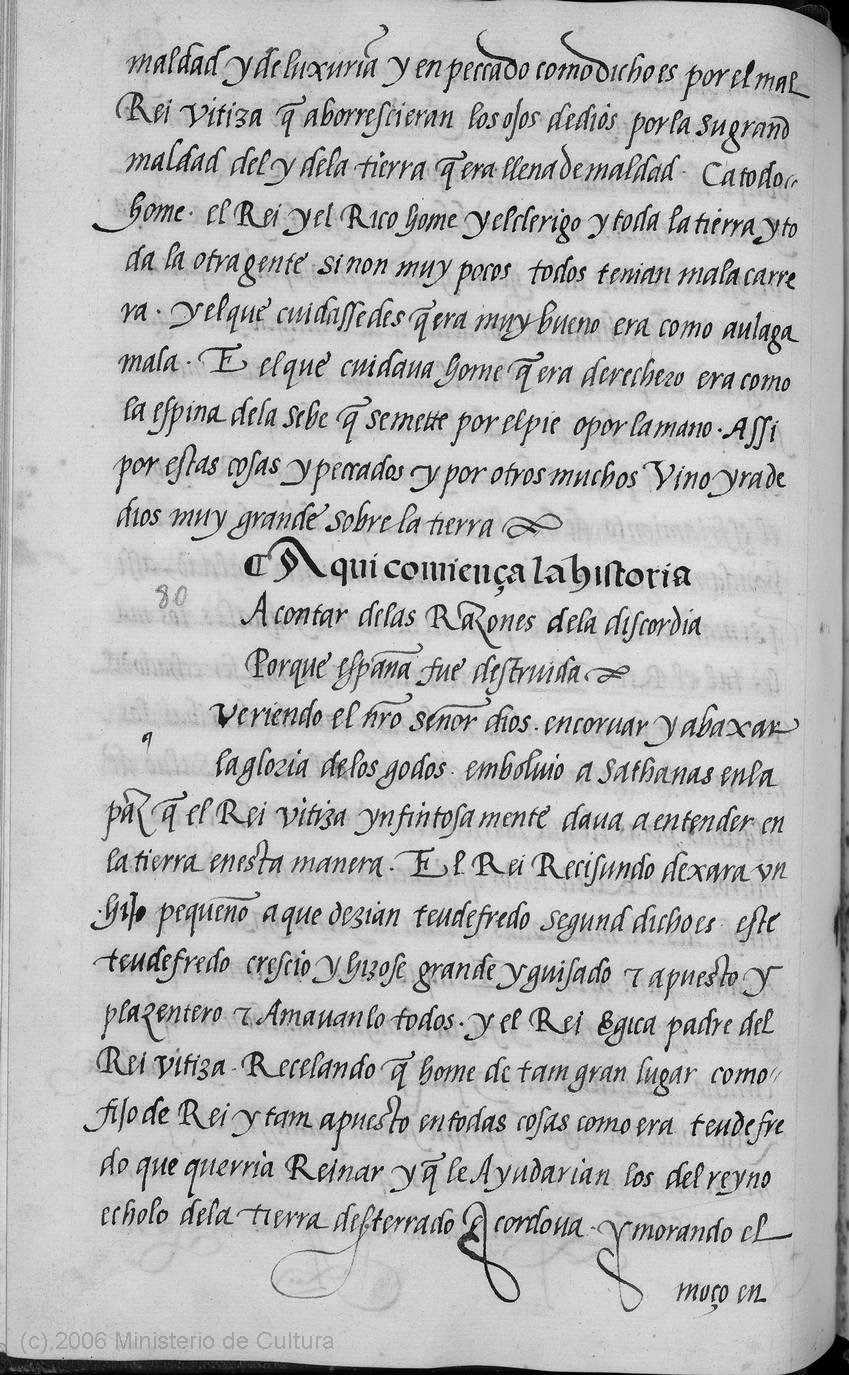 maldad y de luxuria y en peccado como dicho es por el mal
Rei vitiza q̃ aborrescieran los ojos de dios por la su grand
maldad del y dela tierra q̃ era llena de maldad. Ca todo
home. el Rei y el Rico home y el clerigo y toda la tierra y to
da la otra gente si non muy pocos todos tenian mala carre
ra. y el que cuidassedes q̃ era muy bueno era como aulaga
mala. E el que cuidaua home q̃ era derechero era como
la espina dela sebe q̃ se mette por el pie o por la mano. Assi
por estas cosas y peccados y por otros muchos vino yra de
dios muy grande sobre la tierra
Aqui comiença la historia
80
A contar delas Razones dela discordia
Porque españa fue destruida
q
veriendo el nr̃o señor dios. encoruar y abaxar
la gloria delos godos. emboluio a Sathanas en la
paz q̃ el Rei vitiza ynfintosa mente daua a entender en
la tierra en esta manera. El Rei Recisundo dexara vn
hijo pequeño a que dezian teudefredo segund dicho es este
teudefredo crescio y hizose grande y guisado τ apuesto y
plazentero τ Amauanlo todos. y el Rei Egica padre del
Rei vitiza. Recelando q̃ home de tam gran lugar como
fijo de Rei y tam apuesto en todas cosas como era teudefre
do que querria Reinar y q̃ le Ayudarian los del reyno
echolo dela tierra desterrado A cordoua. y morando el
moço en
(c) 2006 Ministerio de Cultura